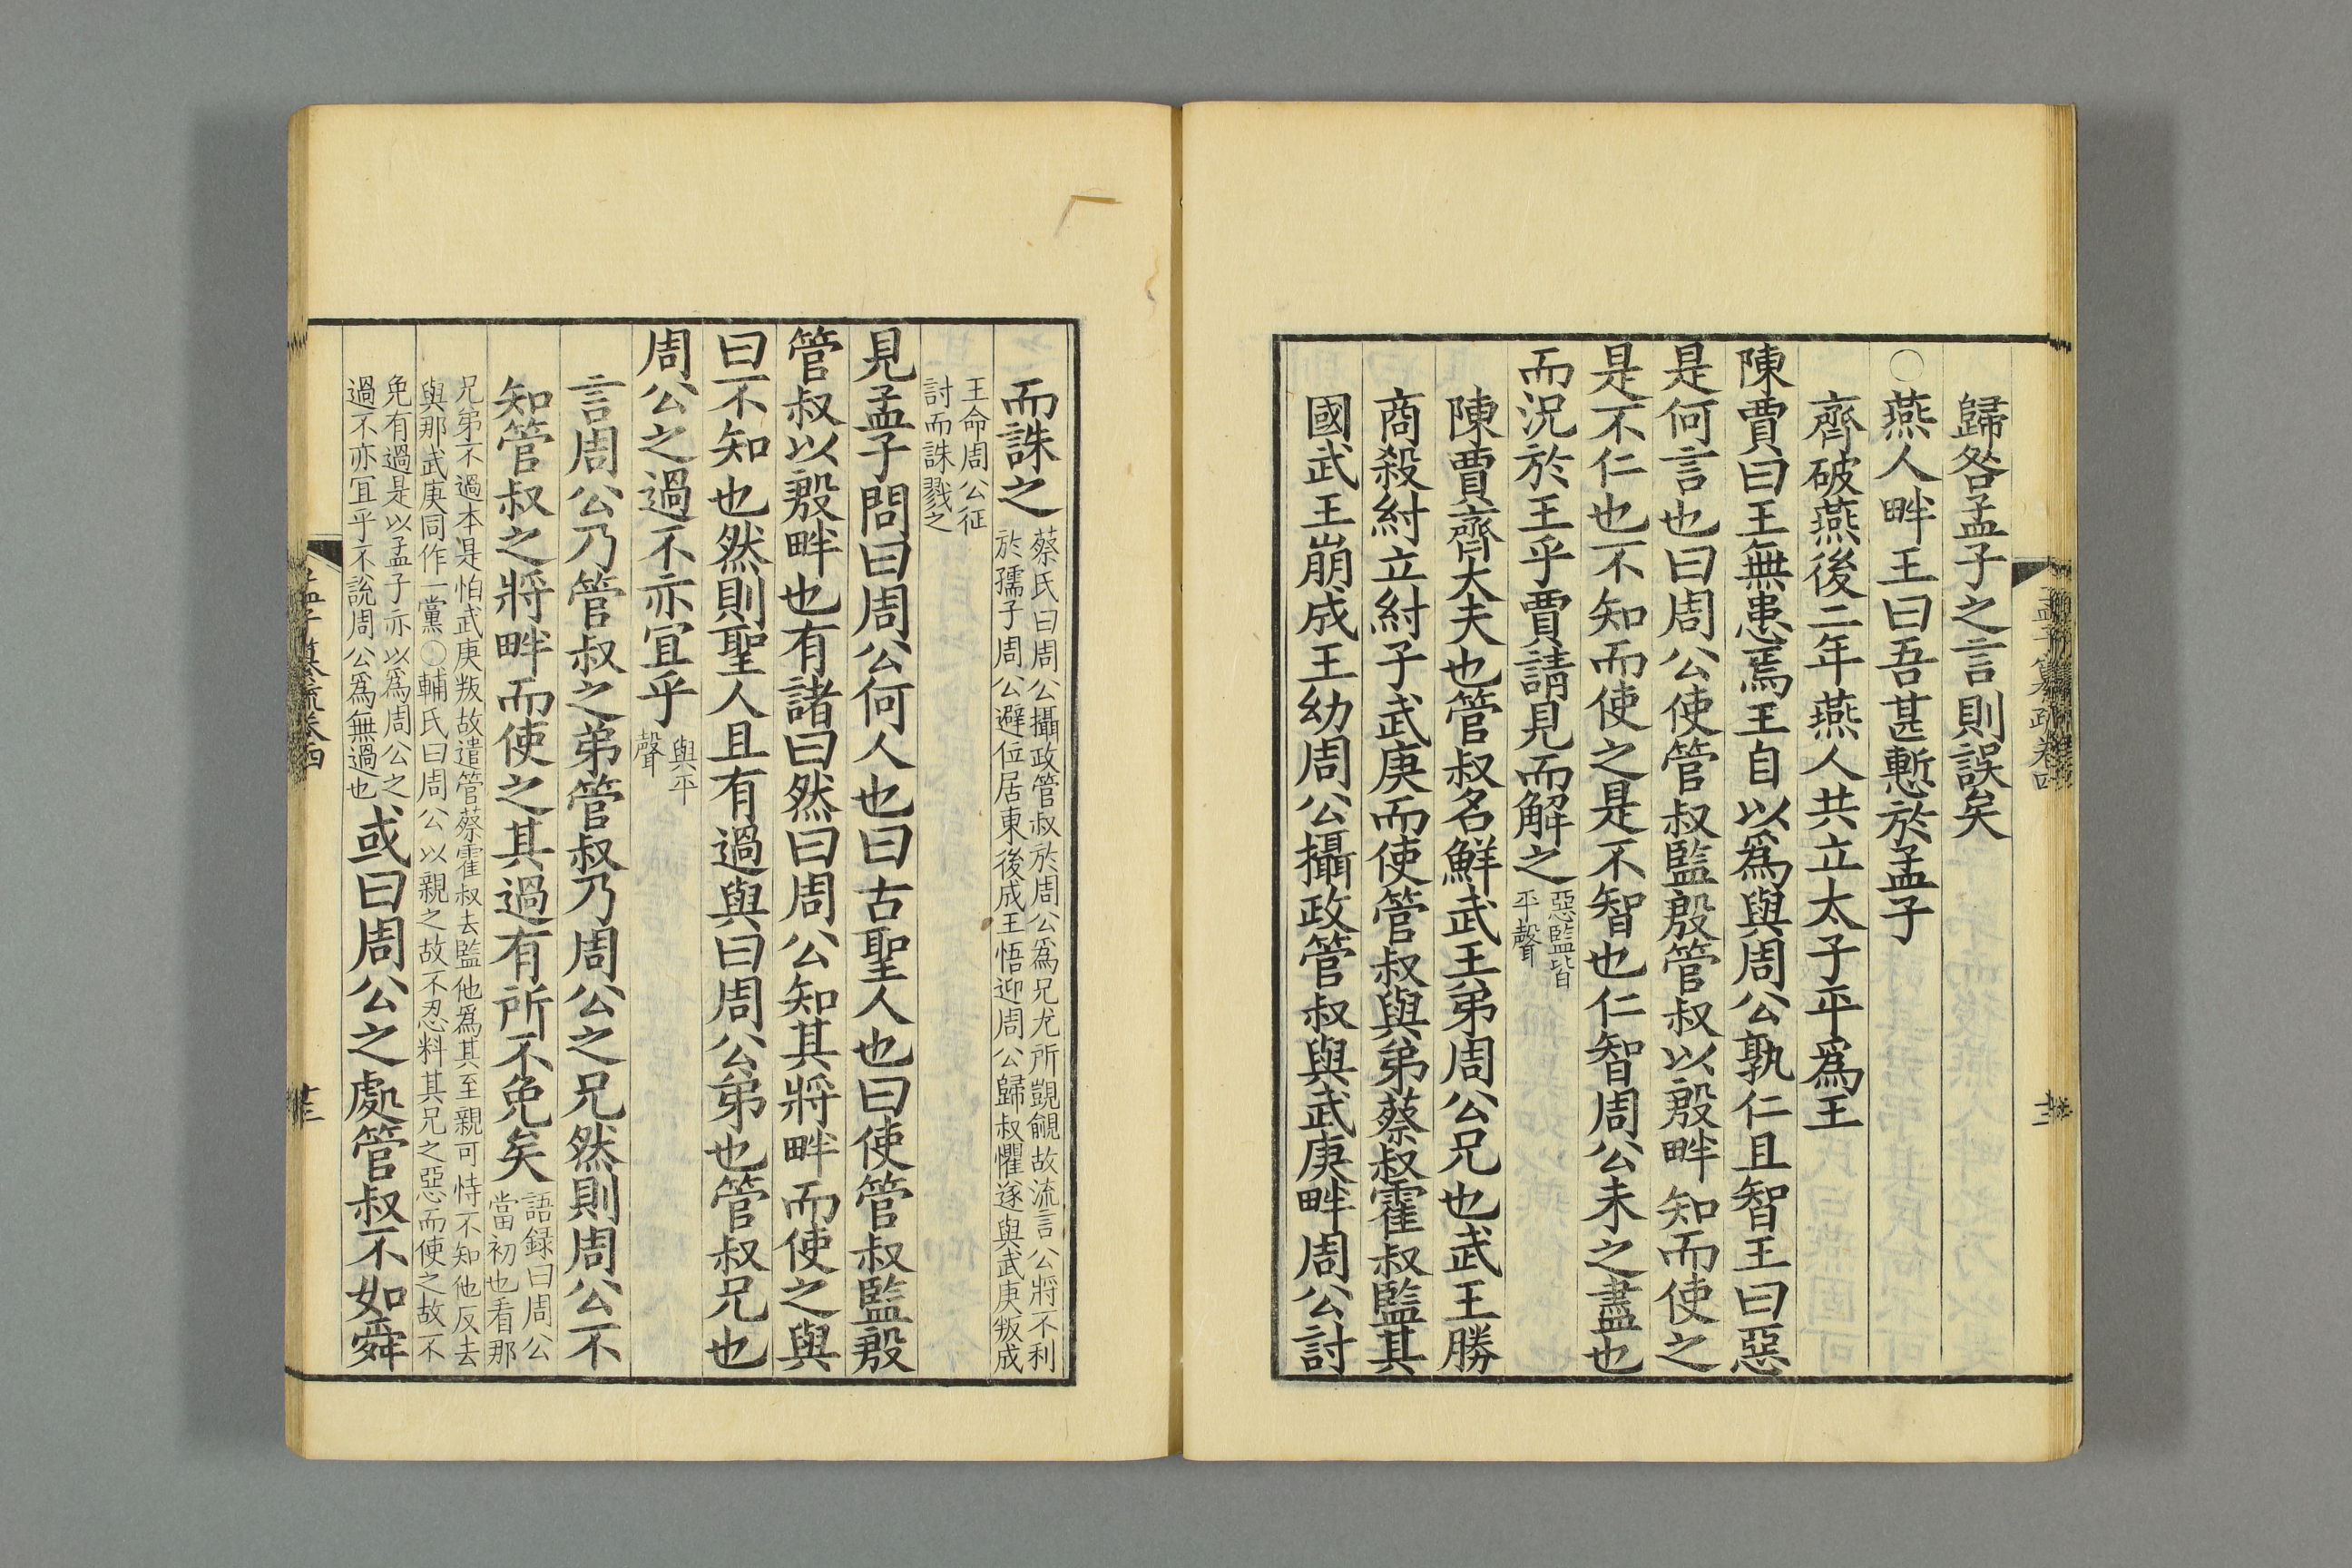 歸咎孟子之言則誤矣
○燕人畔王曰吾甚慙於孟子
齊破燕後二年燕人共立太子平爲王
陳賈曰王無患焉王自以爲與周公孰仁且智王曰惡
是何言也曰周公使管叔監殷管叔以殷畔知而使之
是不仁也不知而使之是不智也仁智周公未之盡也
而況於王乎賈請見而解之
惡監皆
平聲
陳賈齊大夫也管叔名鮮武王弟周公兄也武王勝
商殺紂立紂子武庚而使管叔與弟蔡叔霍叔監其
國武王崩成王幼周公攝政管叔與武庚畔周公討
而誅之
蔡氏曰周公攝政管叔於周公爲兄尤所覬覦故流言公將不利
於孺子周公避位居東後成王悟迎周公歸叔懼遂與武庚叛成
王命周公征
討而誅戮之
見孟子問曰周公何人也曰古聖人也曰使管叔監殷
管叔以殷畔也有諸曰然曰周公知其將畔而使之與
曰不知也然則聖人且有過與曰周公弟也管叔兄也
周公之過不亦宜乎
與平
聲
言周公乃管叔之弟管叔乃周公之兄然則周公不
知管叔之將畔而使之其過有所不免矣
語録曰周公
當初也看那
兄弟不過本是怕武庚叛故遣管蔡霍叔去監他爲其至親可恃不知他反去
與那武庚同作一黨○輔氏曰周公以親之故不忍料其兄之惡而使之故不
免有過是以孟子亦以爲周公之
過不亦宜乎不說周公爲無過也
或曰周公之處管叔不如舜
孟子纂疏卷四